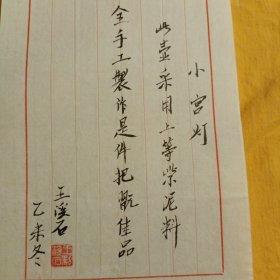 小宫灯
此壶采用上等紫泥料
全手工製作是件把玩佳品
王溪石
乙未冬